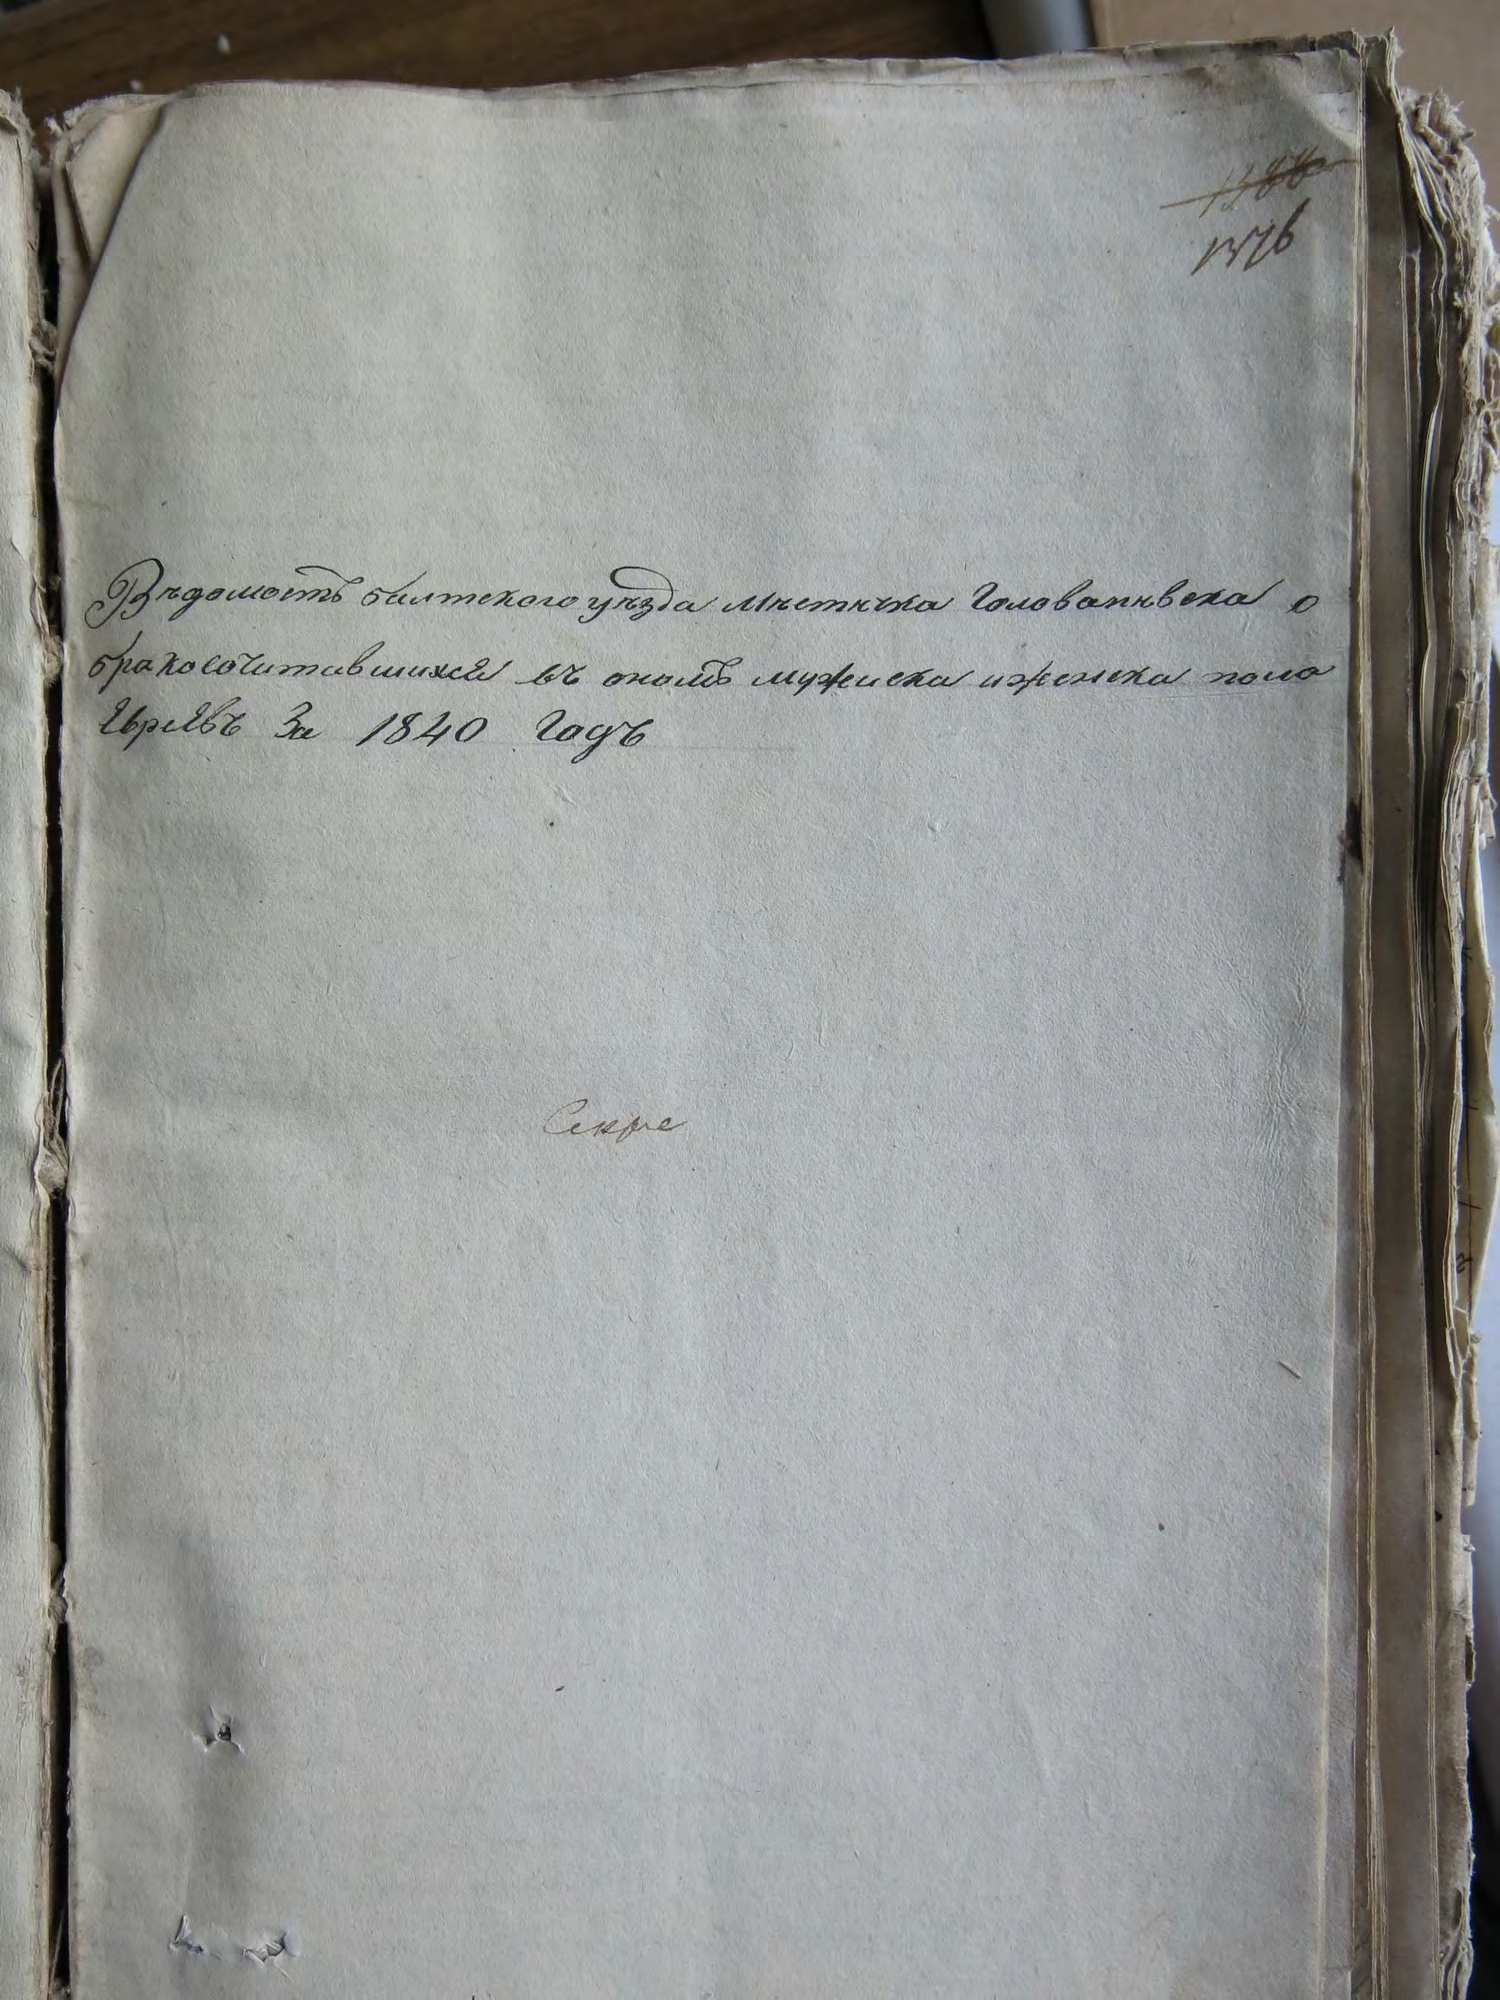 1376
Вѣдомость балтского уѣзда мѣстѣчка Голованѣвска о
бракосочитавшихся въ ономъ мужеска и женска пола
Евреѣвъ За 1840 Годъ
Секре